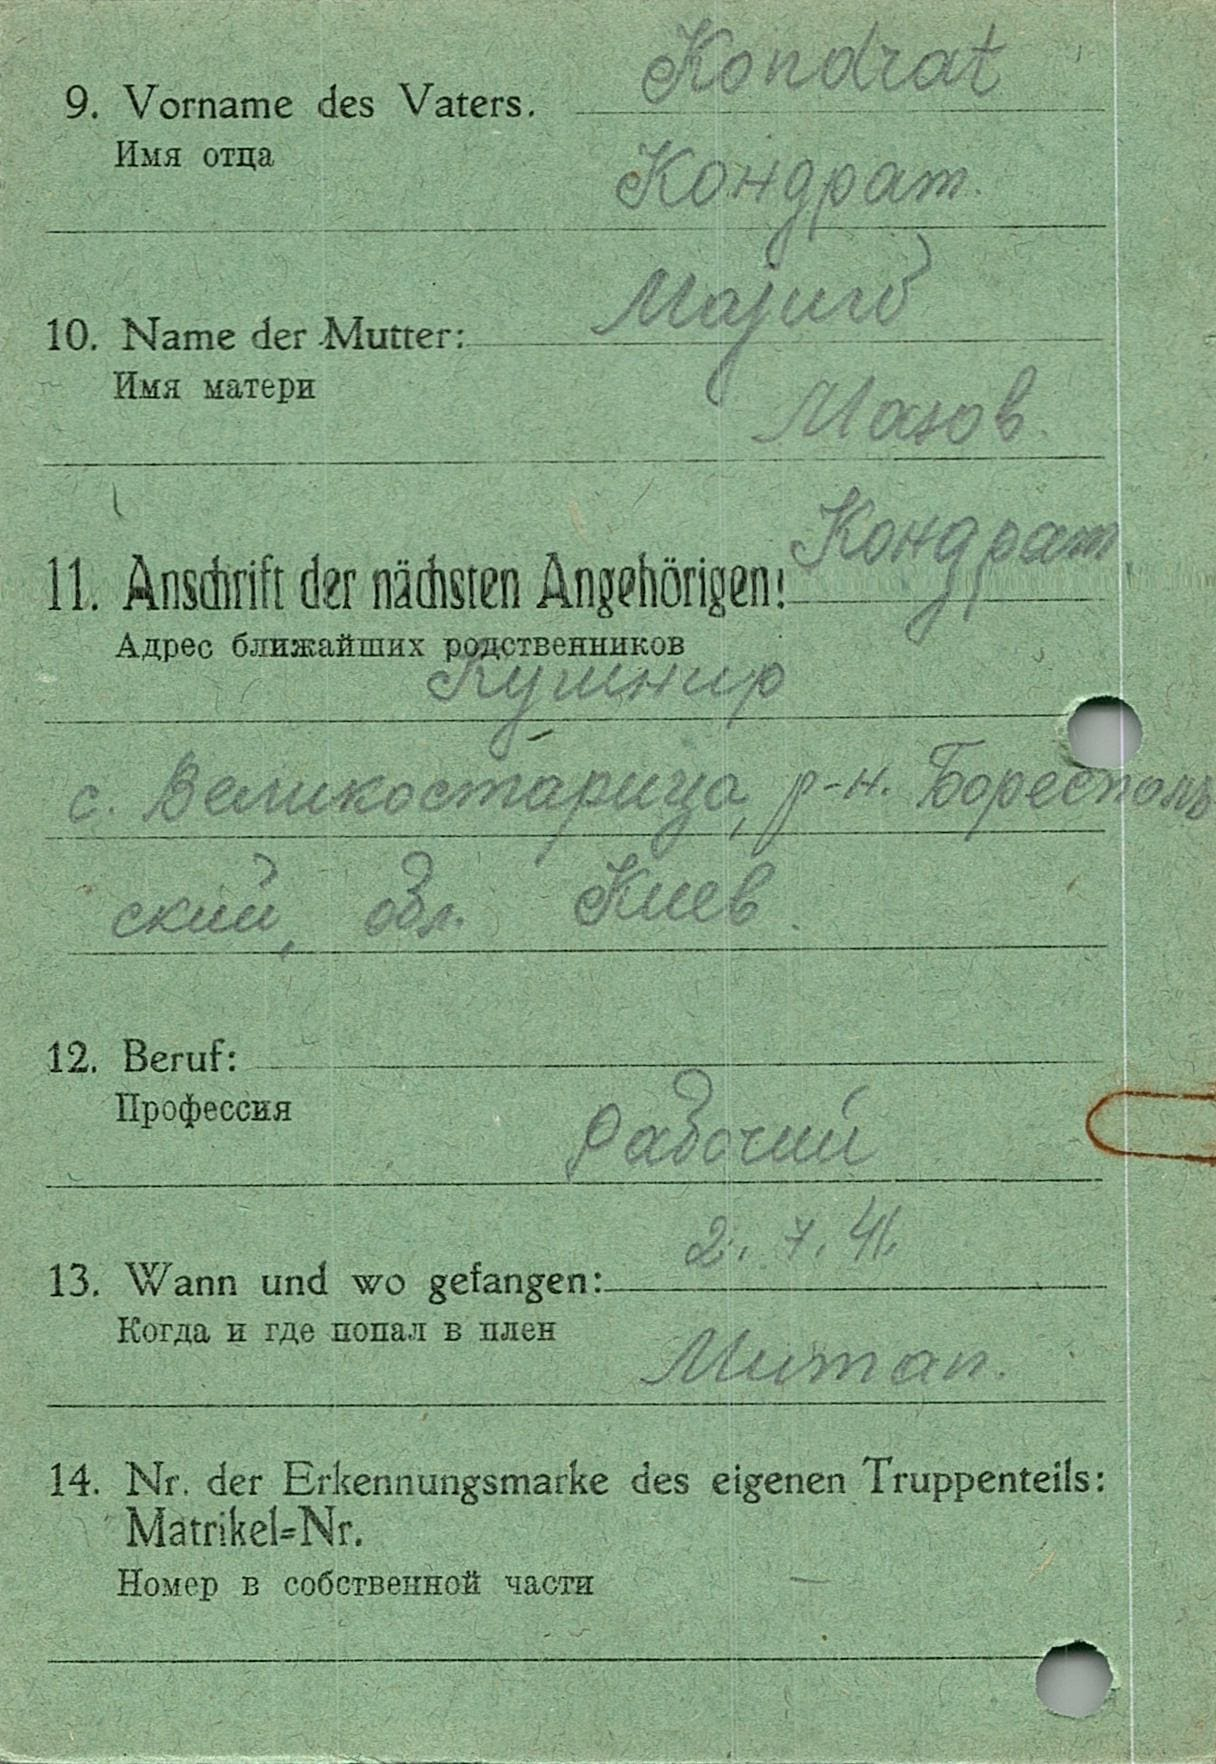 Kondrat
9. Vorname des Vaters.
Имя отца
Кондрат.
10. Name der Mutter:
Имя матери
Мазов.
11. Anschrift der nächsten Angehörigen: Кондрат
Адрес ближайших родственников
Кушнир
с. Великостарица, р-н. Боресполь
ский, обл. Киев.
12. Beruf:
Профессия
Рабочий
2. 7. 41.
13. Wann und wo gefangen:
Когда и где попал в плен
Митап.
14. Nr. der Erkennungsmarke des eigenen Truppenteils:
Matrikel=Nr.
Номер в собственной части
—